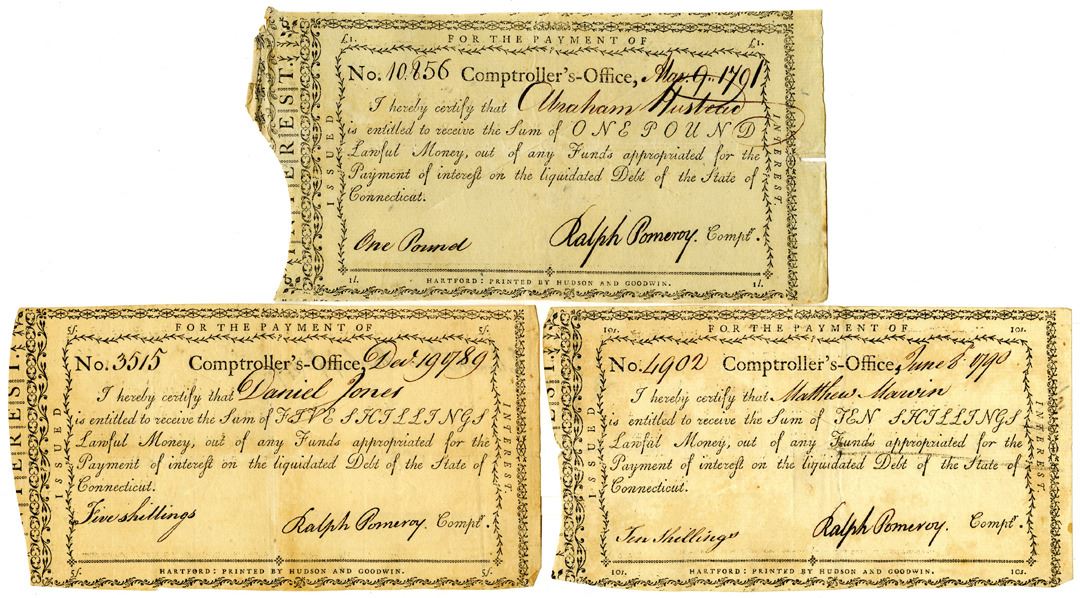 £1. FOR THE PAYMENT OF £1.
No. 10.856 Comptroller's-Office, May 9. 1791
I hereby certify that Abraham Hustead
is entitled to receive the Sum of ONE POUND
Lawful Money, out of any Funds appropriated for the
Payment of interest on the liquidated Debt of the State of
Connecticut.
One Pound Ralph Pomeroy. Compt.r
1l. HARTFORD: PRINTED BY HUDSON AND GOODWIN. 1l.
ISSUED
INTEREST.
5s. FOR THE PAYMENT OF 5s.
No. 3515 Comptroller's-Office, Dec.r 19 1789
I hereby certify that Daniel Jones
is entitled to receive the Sum of FIVE SHILLINGS
Lawful Money, out of any Funds appropriated for the
Payment of interest on the liquidated Debt of the State of
Connecticut.
Five shillings Ralph Pomeroy. Compt.r
5s. HARTFORD: PRINTED BY HUDSON AND GOODWIN. 5s.
ISSUED
INTEREST.
10s. FOR THE PAYMENT OF 10s.
No. 4902 Comptroller's-Office, June 8 1790
I hereby certify that Matthew Marvin
is entitled to receive the Sum of TEN SHILLINGS
Lawful Money, out of any Funds appropriated for the
Payment of interest on the liquidated Debt of the State of
Connecticut.
Ten Shillings Ralph Pomeroy. Compt.r
10s. HARTFORD: PRINTED BY HUDSON AND GOODWIN. 10s.
ISSUED
INTEREST.